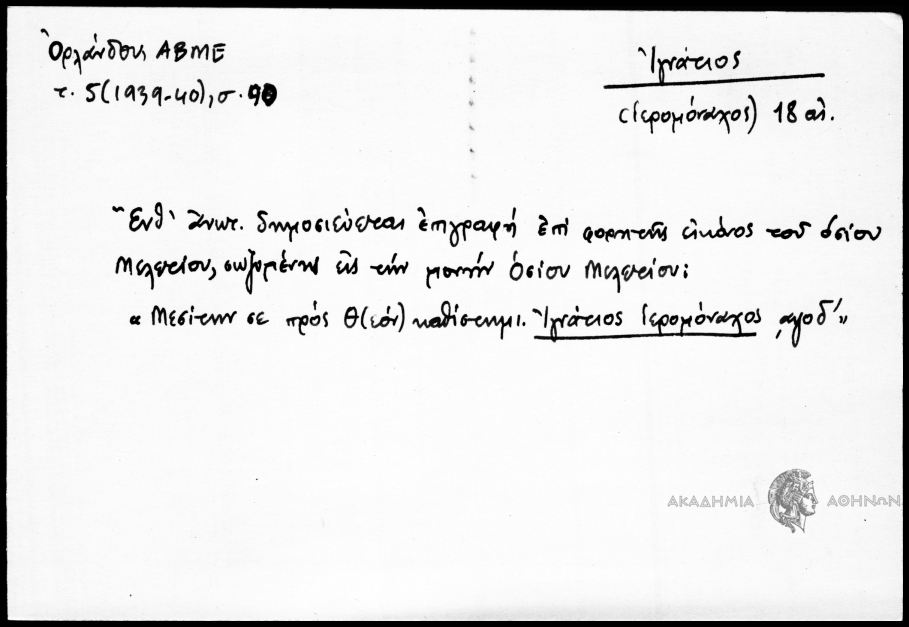 Ὀρλάνδος, ΑΒΜΕ
τ. 5(1939-40), σ. 90
Ἰγνάτιος
(ἱερομόναχος) 18 αἰ.
Ἔνθ' ἄνωτ. δημοσιεύεται ἐπιγραφή ἐπί φορητῆς εἰκόνος τοῦ ὁσίου
Μελετίου, σωζομένης εἰς τήν μονήν Ὁσίου Μελετίου:
« Μεσίτην σε πρός Θ(εόν) καθίστημι. Ἰγνάτιος ἱερομόναχος ͵αψοδ' »
ΑΚΑΔΗΜΙΑ ΑΘΗΝΩΝ